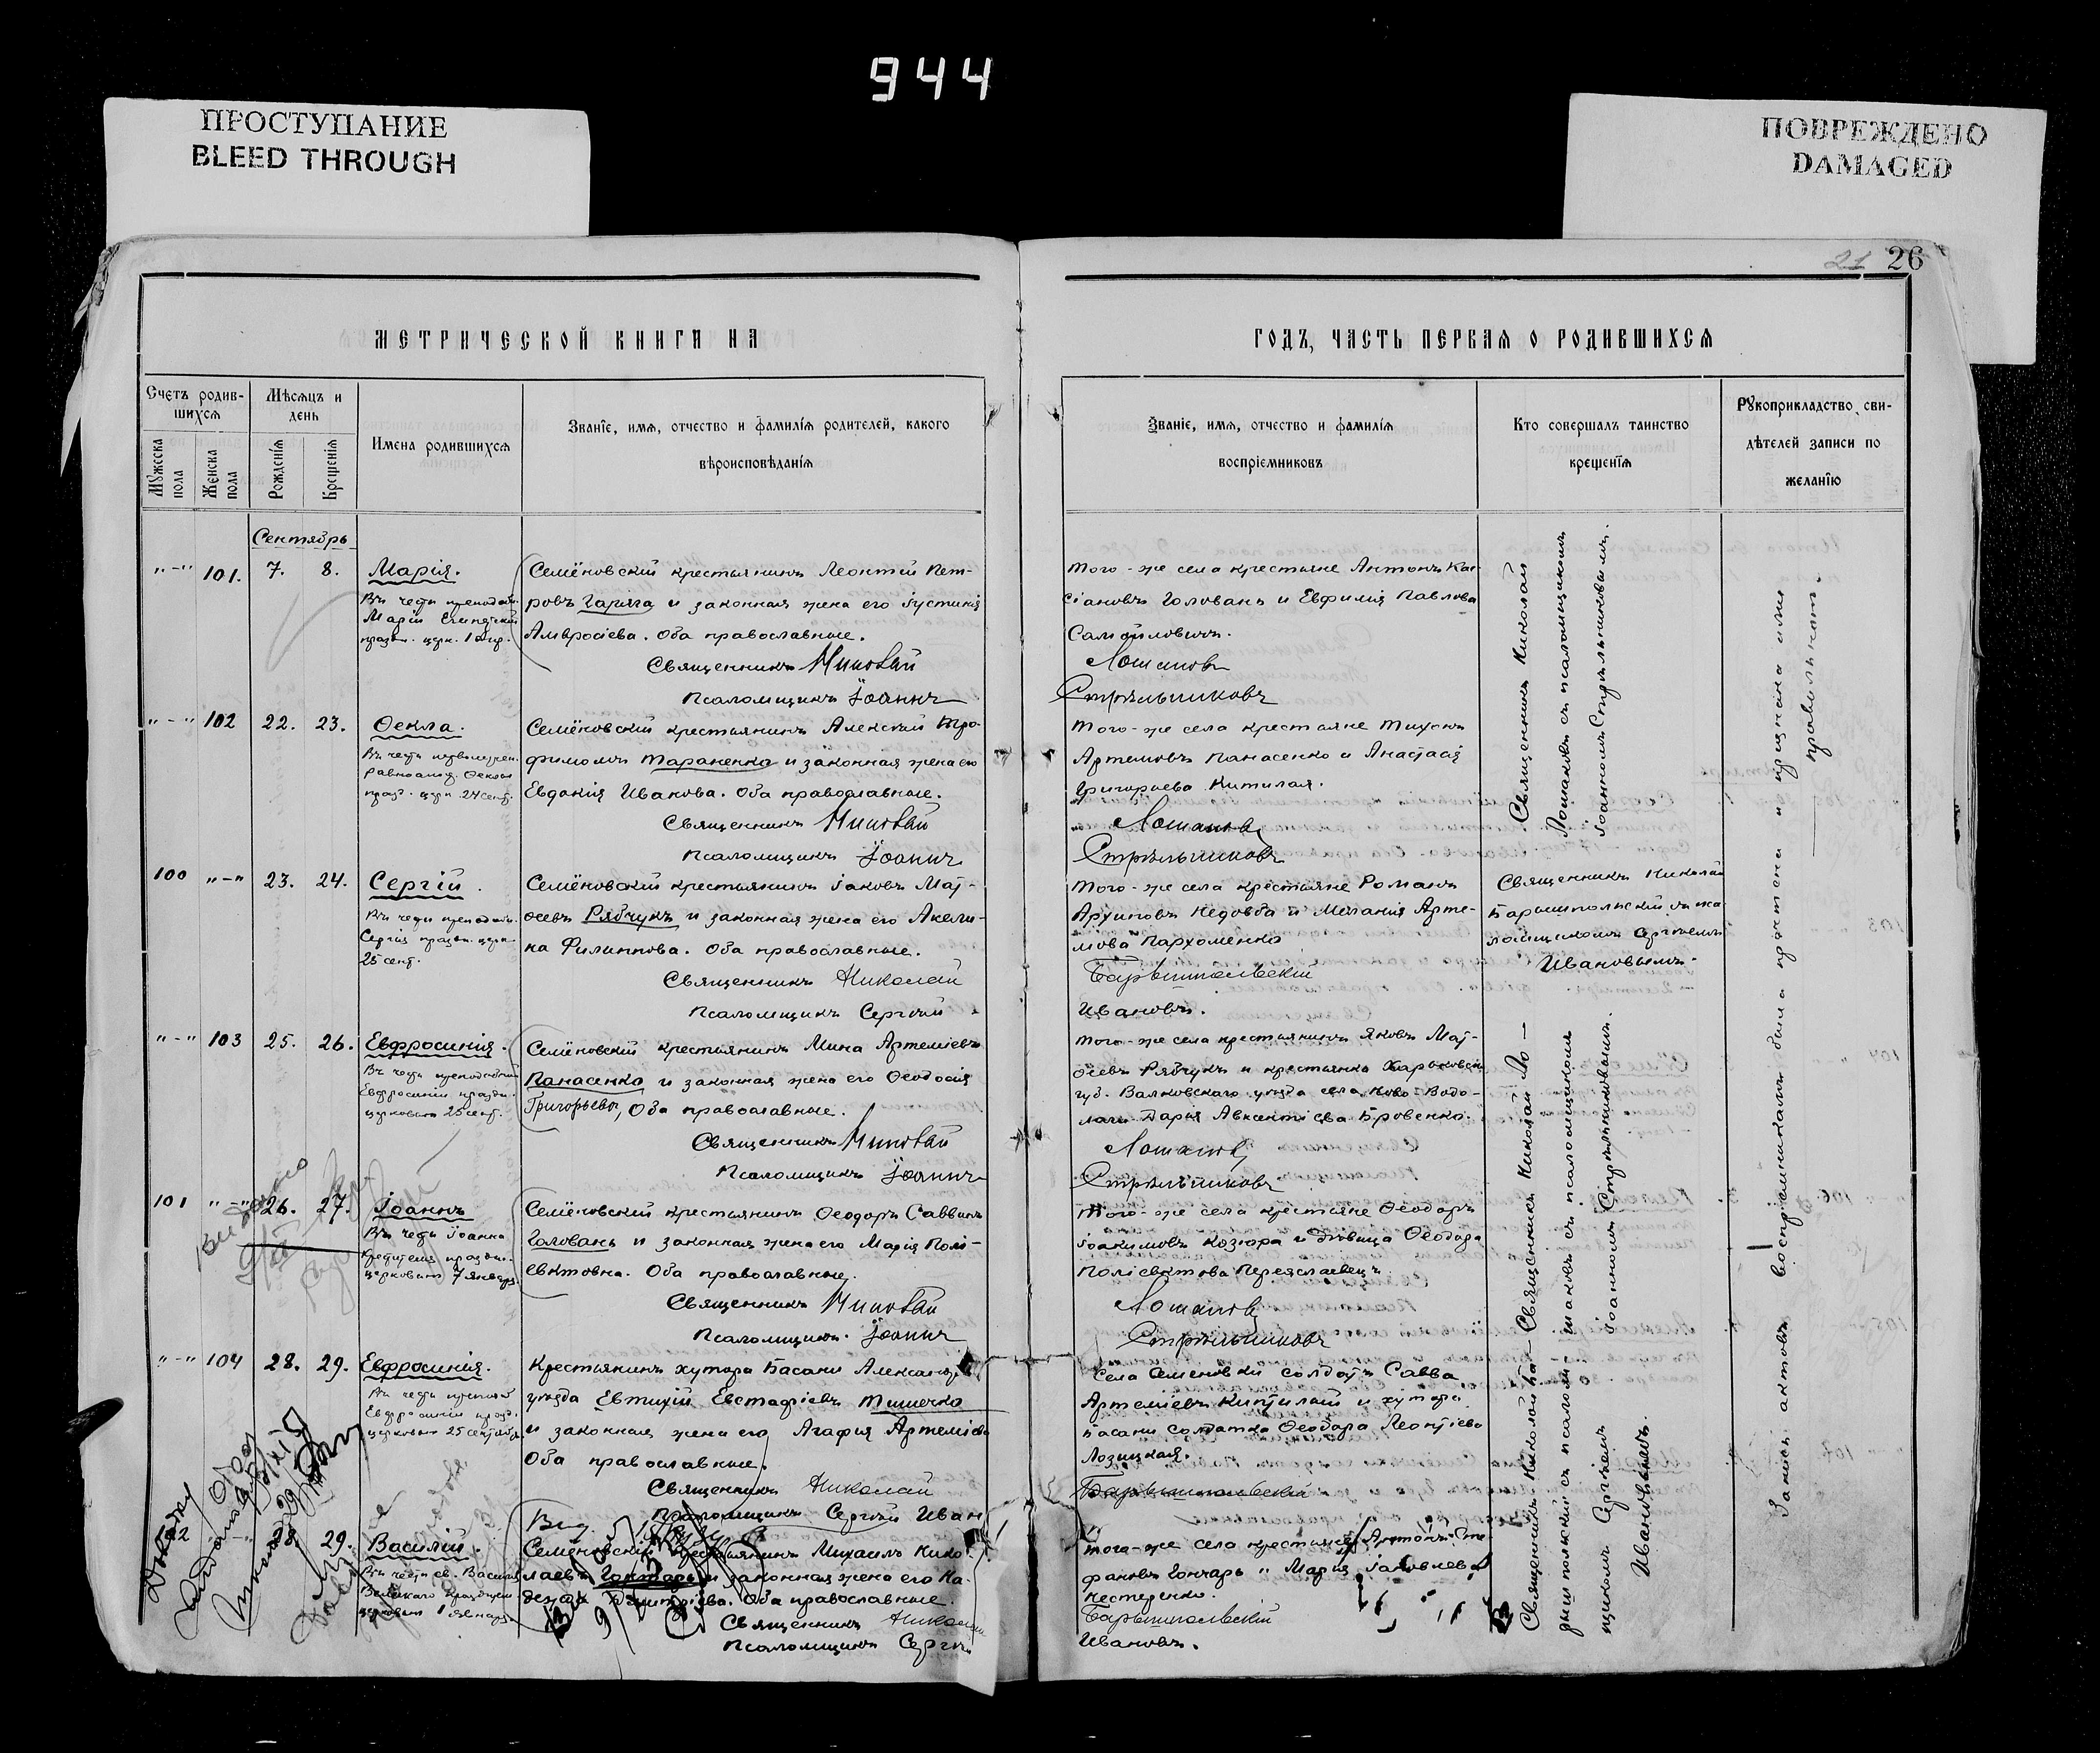 944
ПРОСТУПАНИЕ
BLEED THROUGH
ПОВРЕЖДЕНО
DAMAGED
21 26
МЕТРИЧЕСКОЙ КНИГИ НА
ГОДЪ, ЧАСТЬ ПЕРВАЯ О РОДИВШИХСЯ
Счетъ родив-
шихся
Мужеска
пола
Женска
пола
Мѣсяцъ и
день
Рожденія
Крещенія
Имена родившихся
Званіе, имя, отчество и фамилія родителей, какого
вѣроисповѣданія
Званіе, имя, отчество и фамилія
воспріемниковъ
Кто совершалъ таинство
крещенія
Рукоприкладство сви-
дѣтелей записи по
желанію
Сентябрь
"-" 101. 7. 8. Марія.
Въ честь преподоб.
Маріи Египетской
празд. церк. 1 апр.
Семёновскій крестьянинъ Леонтій Пет-
ровъ Гаряга и законная жена его Іустинія
Амвросіева. Оба православные.
Священникъ Николай
Псаломщикъ Іоаннъ
Того-же села крестьяне Антонъ Кас-
сіановъ Головань и Евфимія Павлова
Самойловичъ.
Лошаковъ
Стрѣльниковъ
"-" 102 22. 23. Ѳекла.
Въ честь первомучен.
Равноапос. Ѳеклы
празд. церк. 24 сент.
Семёновскій крестьянинъ Алексѣй Тро-
фимовъ Тараненко и законная жена его
Евдокія Иванова. Оба православные.
Священникъ Николай
Псаломщикъ Іоаннъ
Того-же села крестьяне Тихонъ
Артемовъ Панасенко и Анастасія
Григорьева Китилая.
Лошаковъ
Стрѣльниковъ
Священникъ Николай
Лошаковъ съ псаломщикомъ
Іоанномъ Стрѣльниковымъ.
100 "-" 23. 24. Сергій.
Въ честь преподоб.
Сергія празд. церк.
25 сент.
Семёновскій крестьянинъ Іаковъ Мат-
ѳеевъ Рябчукъ и законная жена его Акели-
на Филиппова. Оба православные.
Священникъ Николай
Псаломщикъ Сергѣй
Того-же села крестьяне Романъ
Архиповъ Недовба и Меланія Арте-
мова Пархоменко
Барышпольскій
Ивановъ.
Священникъ Николай
Барышпольскій съ пса
ломщикомъ Сергѣемъ
Ивановымъ.
"-" 103 25. 26. Евфросинія.
Въ честь преподобной
Евфросиніи празд.
церковью 25 сент.
Семёновскій крестьянинъ Мина Артеміевъ
Панасенко и законная жена его Ѳеодосія
Григорьева, Оба православные.
Священникъ Николай
Псаломщикъ Іоаннъ
Того-же села крестьянинъ Яковъ Мат-
ѳеевъ Рябчукъ и крестьянка Харьковской
губ. Валковскаго уѣзда села Ново-Водо-
лаги Дарія Авксентіева Бровенко.
Лошаковъ
Стрѣльниковъ
101 "-" 26. 27. Іоаннъ
Въ честь Іоанна
Крестителя праздн.
церковью 7 января
Семёновскій крестьянинъ Ѳеодоръ Саввинъ
Головань и законная жена его Марія Полі-
евктовна. Оба православные.
Священникъ Николай
Псаломщикъ Іоаннъ
Того-же села крестьяне Ѳеодоръ
Іоакимовъ Козюра и дѣвица Ѳеодора
Поліевктова Переяславецъ.
Лошаковъ
Стрѣльниковъ
Священникъ Николай Ло-
шаковъ съ псаломщикомъ
Іоанномъ Стрѣльниковымъ.
"-" 104 28. 29. Евфросинія.
Въ честь препод.
Евфросиніи празд.
церковью 25 сентября
Крестьянинъ хутора Басани Александр.
уѣзда Евтихій Евстафіевъ Тимечко
и законная жена его Агафія Артеміева
Оба православные.
Священникъ Николай
Псаломщикъ Сергѣй Иван
Села Семеновки солдатъ Савва
Артеміевъ Китилай и хутора
Басани солдатка Ѳеодора Леонтіева
Лозицкая.
Барышпольскій
28 29. Василій.
Въ честь св. Василія
Великаго празднуем.
церковью 1 января
Семеновскій крестьянинъ Михаилъ Нико-
лаевъ Гончарь и законная жена его На-
дежда Дмитріева. Оба православные.
Священникъ Николай
Псаломщикъ Сергѣй
Того-же села крестьяне Антонъ Сте-
фановъ Гончарь и Марія Іаковлева
Нестеренко.
Барышпольскій
Ивановъ.
Священникъ Николай Ба-
рышпольскій съ псалом-
щикомъ Сергѣемъ
Ивановымъ.
Запись актовъ воспріемникамъ была прочтена и признана ими
правильною.